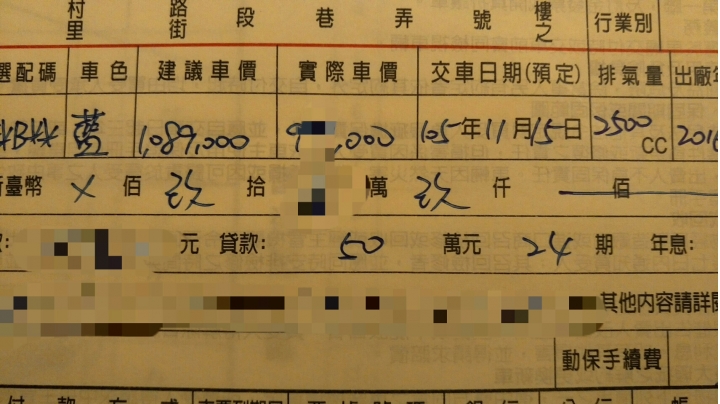 村里 路街 段 巷 弄 號 樓之 行業別
選配碼 車色 建議車價 實際車價 交車日期(預定) 排氣量 出廠年
藍 1,089,000 9 ,000 105年11月15日 2500 CC 2016
新臺幣 X 佰 玖 拾 萬 玖 仟 佰
款: 元 貸款: 50 萬元 24 期 年息:
其他內容請詳閱
動保手續費
付款方式 銀行 分行 帳